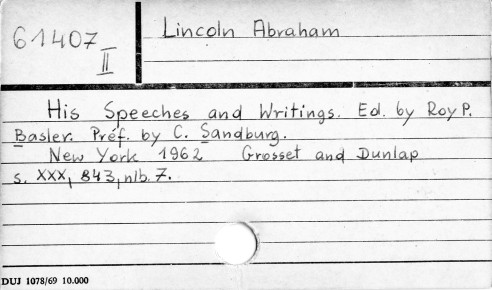 61407
II
Lincoln Abraham
His Speeches and Writings. Ed. by Roy P.
Basler. Préf. by C. Sandburg.
New York 1962 Grosset and Dunlap
s. XXX, 843, nlb. 7.
DUJ 1078/69 10.000